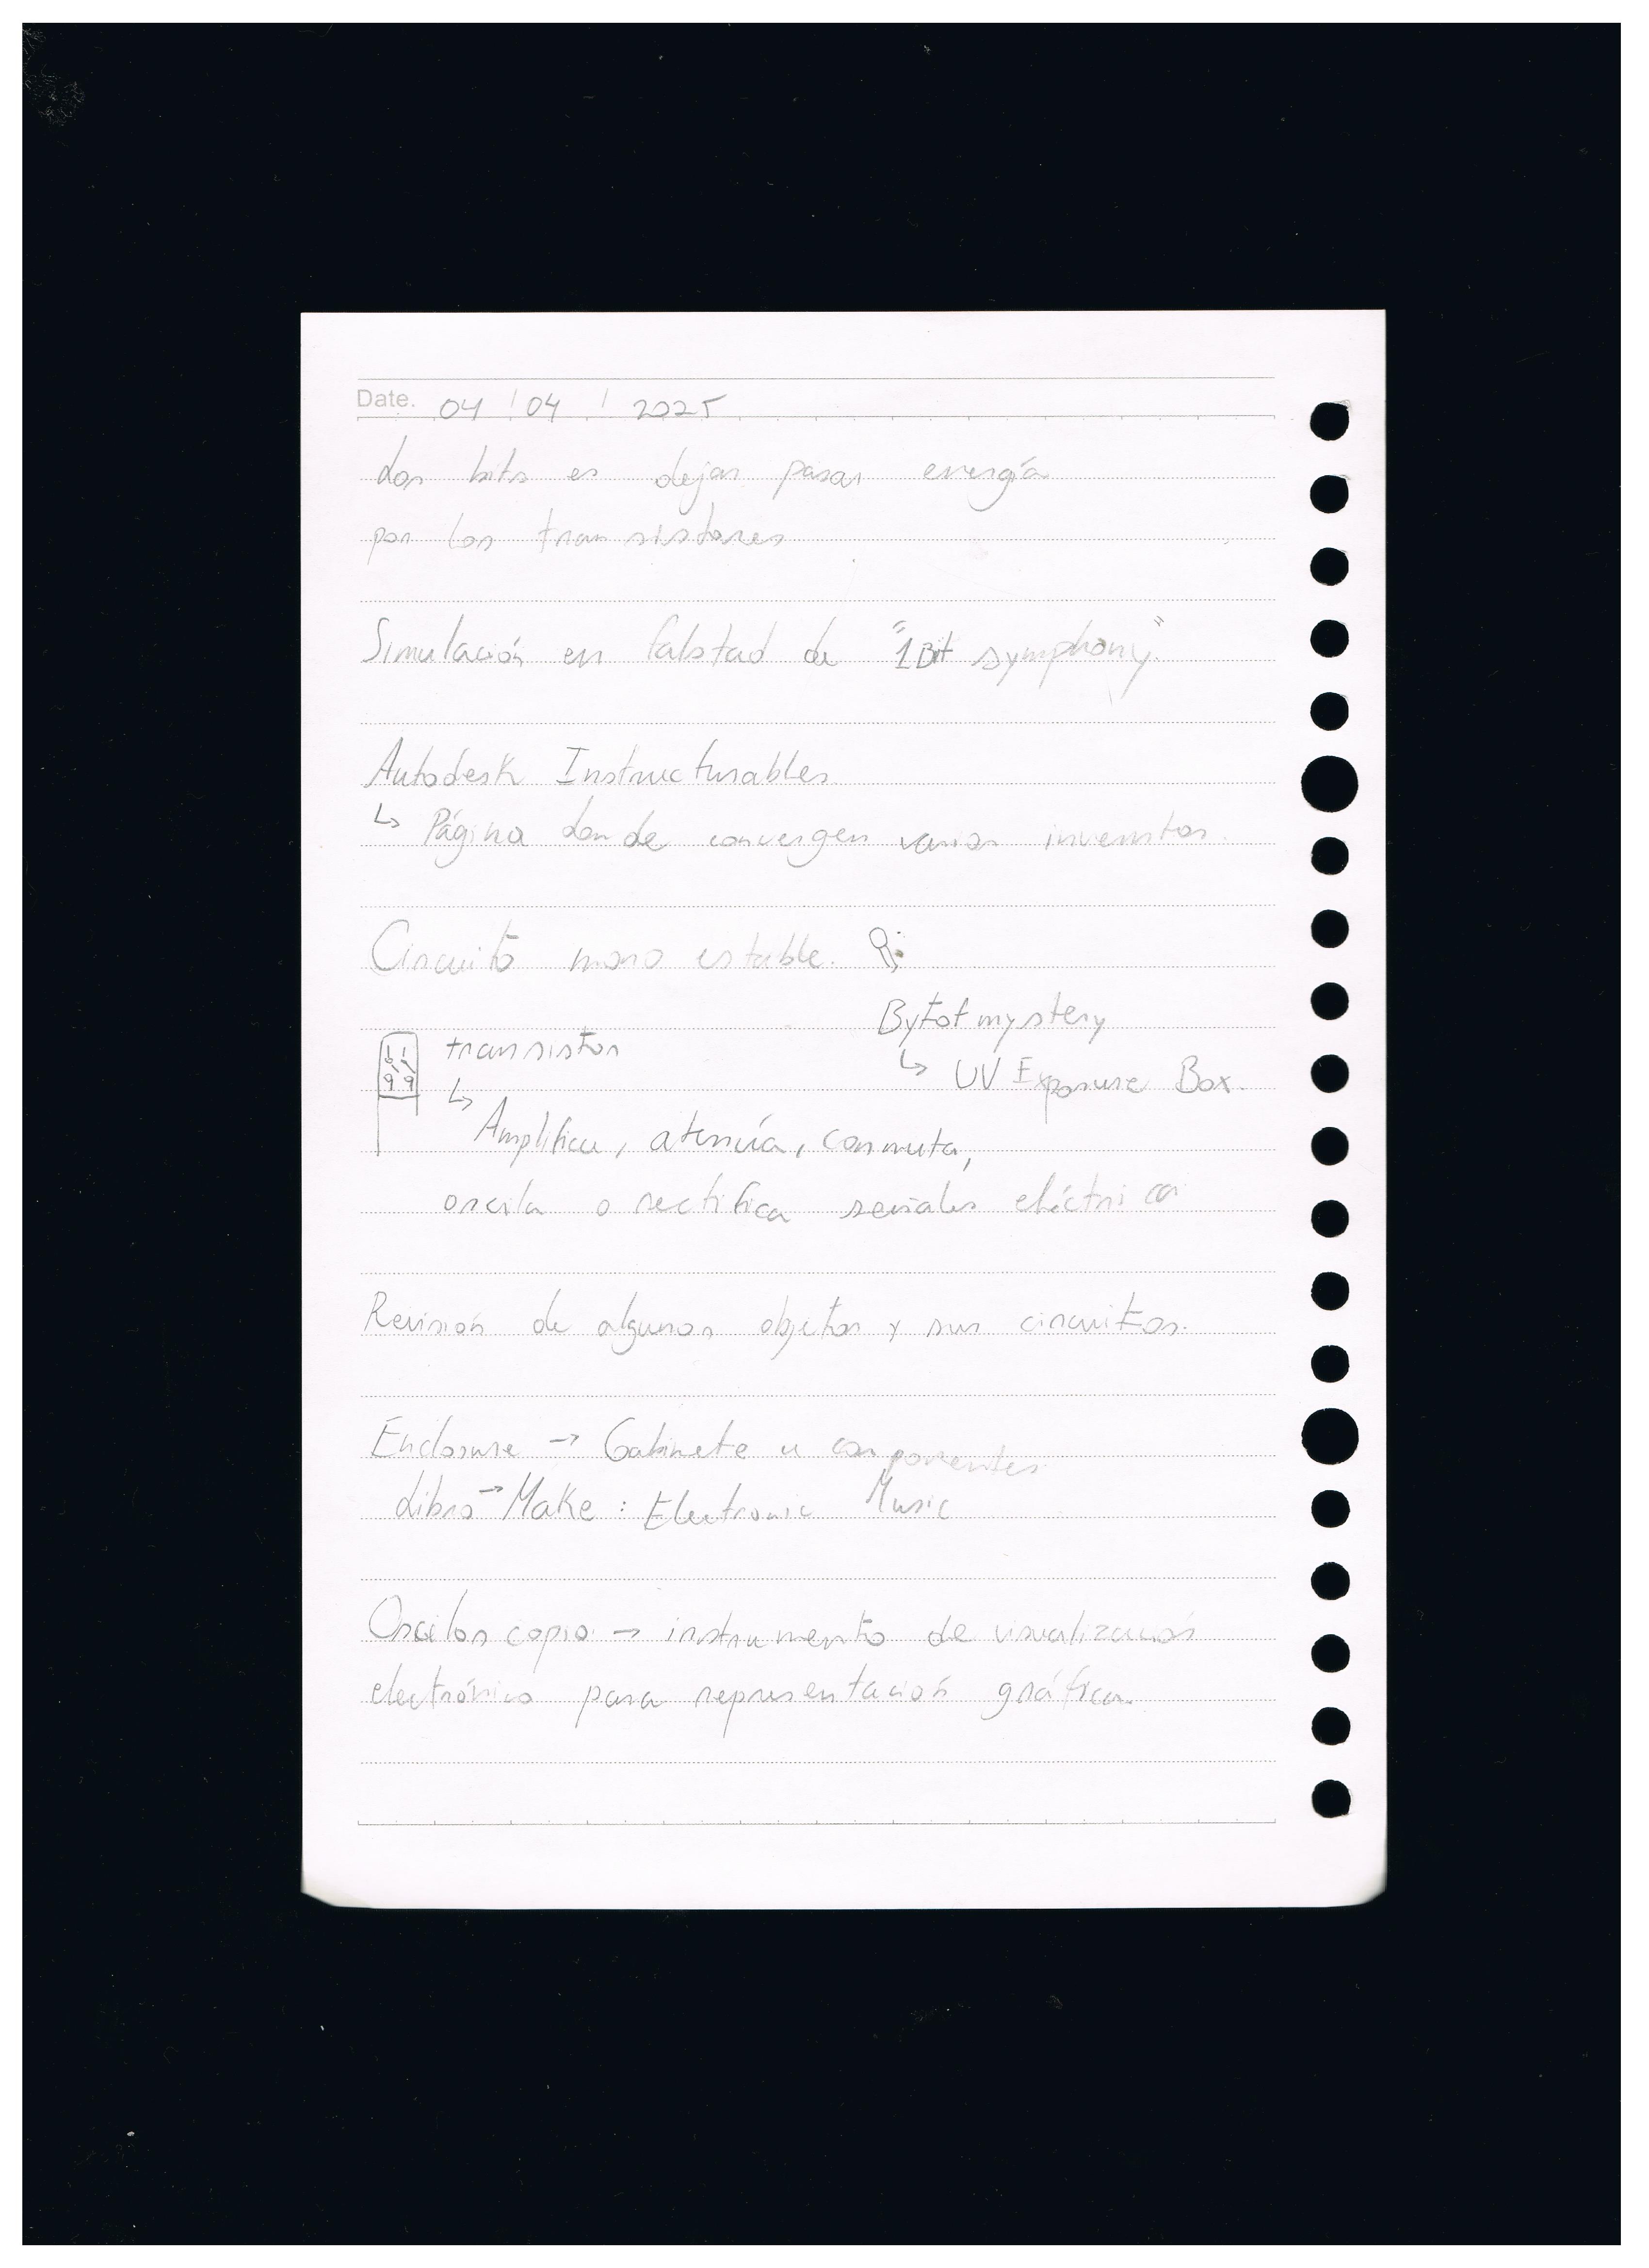 Date. 04 / 04 / 2025
Los bits es dejar pasar energía
por los transistores
Simulación en falstad de "1Bit symphony"
Autodesk Instructurables
↳ Página donde convergen varios inventos.
Circuito mono estable.
Bytofmystery
↳ UV Exposure Box.
transistor
↳ Amplifica, atenúa, conmuta,
oscila o rectifica señales eléctricas
Revisión de algunos objetos y sus circuitos.
Enclosure → Gabinete u componentes
Libro → Make: Electronic Music
Osciloscopio → instrumento de visualización
electrónico para representación gráfica.